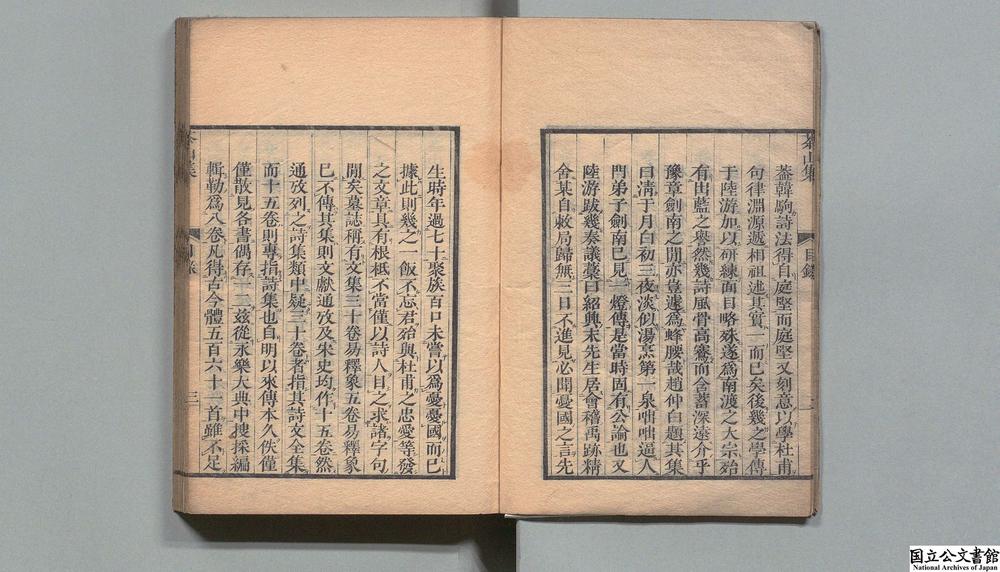 茶山集
目錄
蓋韓駒詩法得自庭堅而庭堅又刻意以學杜甫
句律淵源遞相祖述其實一而已矣後幾之學傳
于陸游加以研練面目略殊遂爲南渡之大宗殆
有出藍之譽然幾詩風骨高騫而含蓄深遠介乎
豫章劍南之閒亦豈遽爲蜂腰哉趙仲白題其集
曰淸于月白初三夜淡似湯烹第一泉咄咄逼人
門弟子劍南已見一燈傳是當時固有公論也又
陸游跋幾奏議藁曰紹興末先生居會稽禹跡精
舍某自敕局歸無三日不進見必聞憂國之言先
生時年過七十聚族百口未嘗以爲憂憂國而已
據此則幾之一飯不忘君殆與杜甫之忠愛等發
之文章具有根柢不當僅以詩人目之求諸字句
閒矣墓誌稱有文集三十卷易釋象五卷易釋象
已不傳其集則文獻通攷及宋史均作十五卷然
通攷列之詩集類中疑三十卷者指其詩文全集
而十五卷則專指詩集也自明以來傳本久佚僅
僅散見各書偶存一二茲從永樂大典中搜採編
輯勒爲八卷凡得古今體五百六十一首雖不足
茶山集
目錄
三
国立公文書館
National Archives of Japan